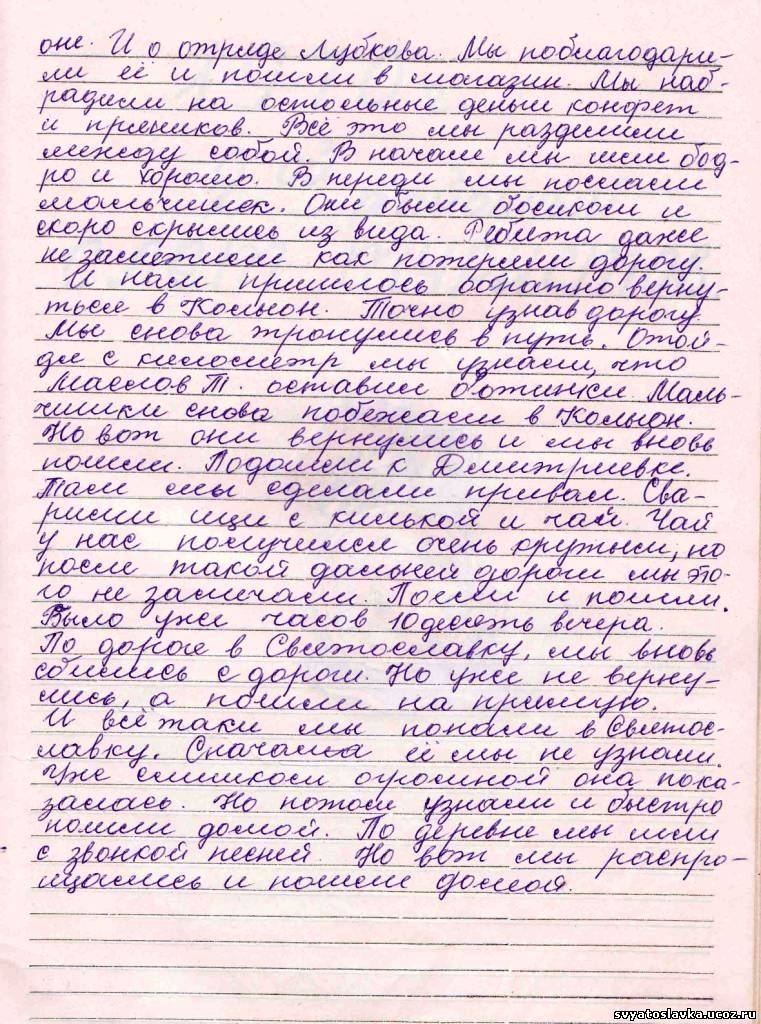 оне. И о отряде Лубкова. Мы поблагодари-
ли её и пошли в магазин. Мы наб-
радили на остольные деньги конфет
и пряников. Всё это мы разделили
между собой. В начале мы шли бод-
ро и хорошо. В переди мы послали
мальчишек. Они были босиком и
скоро скрылись из вида. Ребята даже
не заметили как потеряли дорогу.
И нам пришлось обратно верну-
ться в Кольон. Точно узнав дорогу
мы снова тронулись в путь. Отой-
дя с километр мы узнали, что
Маслов Т. оставил ботинки. Маль-
чишки снова побежали в Кольон.
Но вот они вернулись и мы вновь
пошли. Подошли к Дмитриевке.
Там мы сделали привал. Сва-
рили щи с килькой и чай. Чай
у нас получился очень крутым, но
после такой дальней дороги мы это-
го не замечали. Поели и пошли.
Было уже часов 10 десять вечера.
По дороге в Святославку, мы вновь
сбились с дороги. Но уже не верну-
лись, а пошли на прямую.
И всё таки мы попали в Святос-
лавку. Сначала её мы не узнали.
Уже слишком огромной она пока-
залась. Но потом узнали и быстро
пошли домой. По деревне мы шли
с звонкой песней. Но вот мы распро-
щались и пошли домой.
svyatoslavka.ucoz.ru